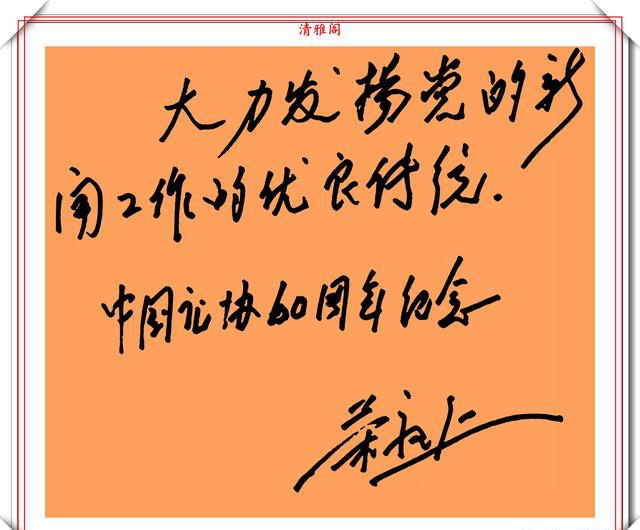 清雅阁
大力发扬党的新
闻工作的优良传统.
中国记协60周年纪念
荣毅仁